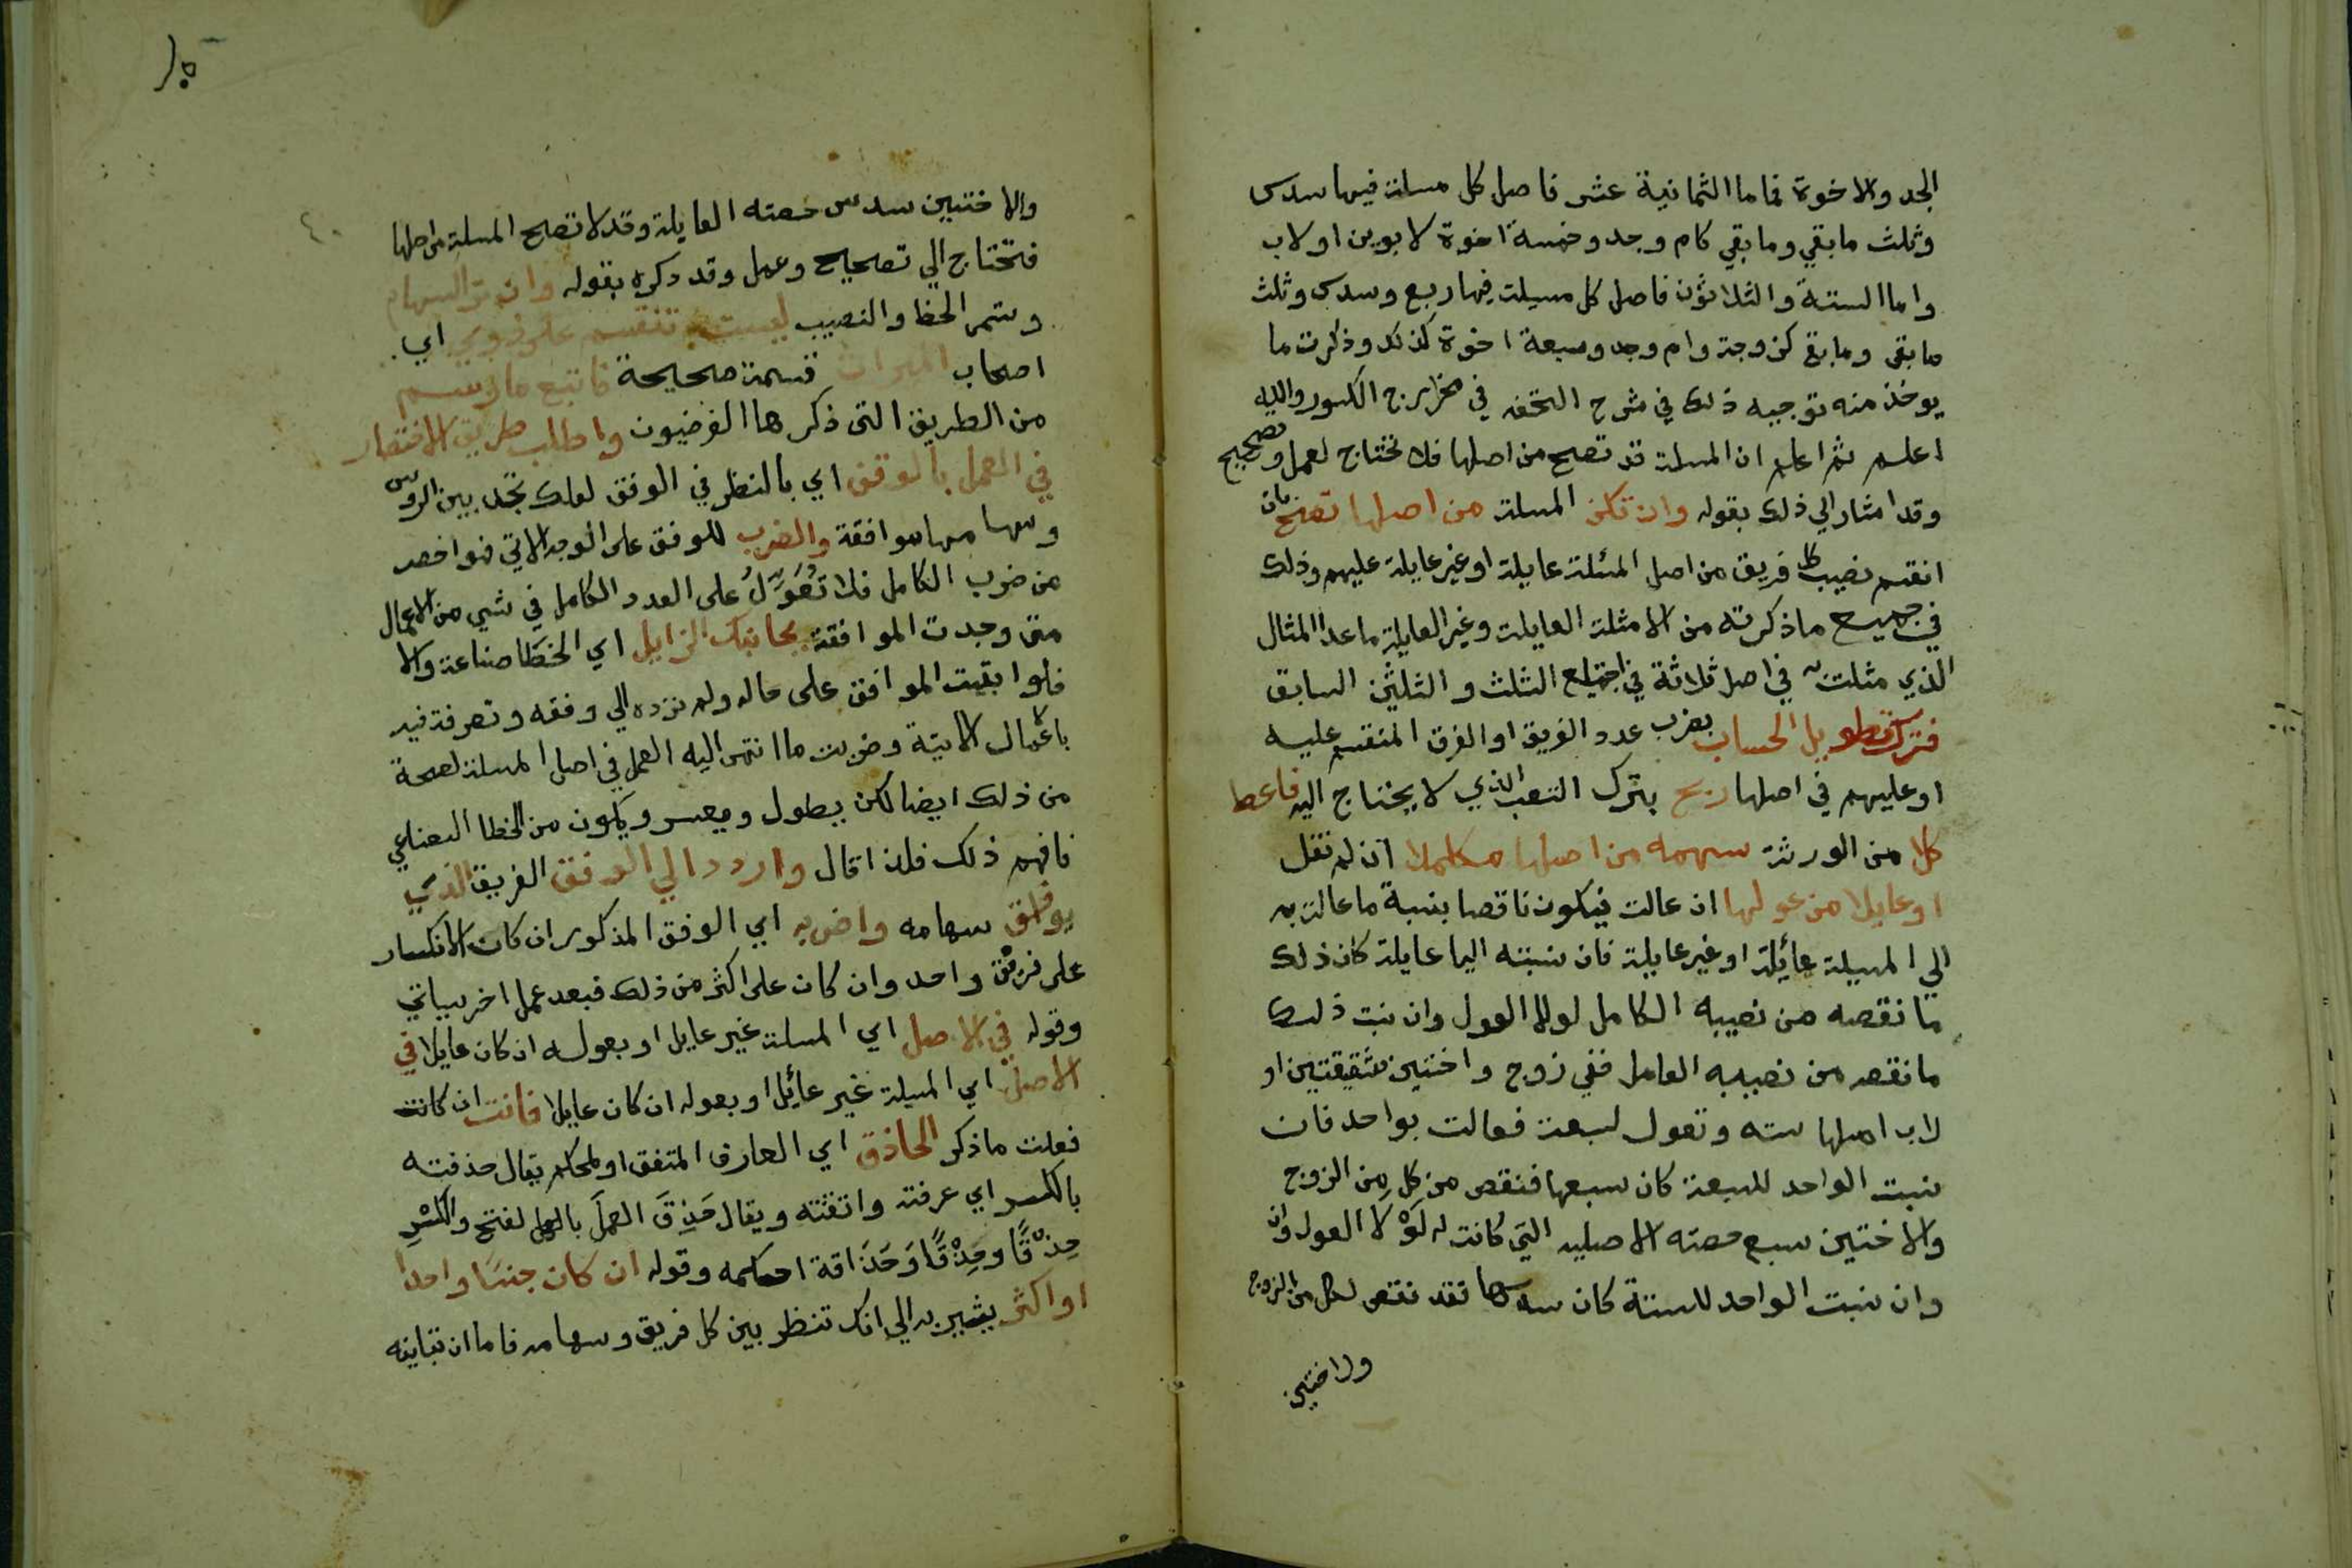 الجد والاخوة فاما الثمانية عشر فاصل كل مسلة فيها سدس
وثلث مابقي ومابقي كام وجد وخمسة اخوة لابوين اولاب
واما الستة والثلاثون فاصل كل مسيلة فيها ربع وسدس وثلث
مابقى ومابقي كزوجة وام وجد وسبعة اخوة كذلك وذكرت ما
يوخذ منه توجيه ذلك في شرح التحفه في مخارج الكسور والله
اعلم ثم اعلم ان المسلة قد تصح من اصلها فلا تحتاج لعمل وتصحيح
وقد اشار الي ذلك بقوله وان تكن المسلة من اصلها تصح بان
انقسم نصيب كل فريق من اصل المئلة عايلة او غير عايلة عليهم وذلك
في جميع ماذكرته من الامثلة العايلة وغير العايلة ماعدا المثال
الذي مثلت به في اصل ثلاثة في اجتماع الثلث والثلثين السابق
فترك تطويل الحساب بضرب عدد الفريق او الفرق المنقسم عليه
او عليهم في اصلها ربح بترك التعب الذي لا يحتاج اليه فاعط
كلا من الورثة سهمه من اصلها مكملا ان لم تعل
او عايلا من عولها ان عالت فيكون ناقصا بنسبة ماعالت به
الي المسيلة عائلة او غير عايلة فان نسبته اليها عايلة كان ذلك
ما نقصه من نصيبه الكامل لولا العول وان نسبت ذلك
مانقص من نصيبه العامل ففي زوج واختين شقيقتين او
لاب اصلها سته وتعول لسبعة فعالت بواحد فان
نسبت الواحد للسبعة كان سبعها فنقص من كل من الزوج
والاختين سبع حصته الاصليه التي كانت له لَوْلا العول وان
وان نسبت الواحد للستة كان سدسها فقد نقص لكل من الزوج
والاختين
والاختيين سدس حصته العايلة وقد لا تصح المسلة من اصلها
فتحتاج الي تصحيح وعمل وقد ذكره بقوله وان تر السهام
وتسمى الحظ والنصيب ليست تنقسم على ذوي اي
اصحاب الميراث قسمة صحيحة فاتبع مارسم
من الطريق التى ذكرها الفرضيون واطلب طريق الاختصار
في العمل بالوفق اي بالنظر في الوفق لعلك تجد بين الروس
وسهامها موافقة والضرب للوفق على الوجه الاتي فهو اخصر
من ضرب الكامل فلا تُعَوِّلُ على العدد الكامل في شي من الاعمال
متى وجدت الموافقة يجانبك الزايل اي الخطا صناعة والا
فلوا بقيت الموافق على حاله ولم ترده الي وفقه وتصرفت فيه
بالاعمال الاتية وضربت ما انتهى اليه العمل في اصل المسلة لصحة
من ذلك ايضا لكن يطول ويعسر ويكون من الخطا الصناعي
فافهم ذلك فلذا قال واردد الي الوفق الفريق الذي
يوافق سهامه واضربه اي الوفق المذكور ان كان الانكسار
على فريق واحد وان كان على اكثر من ذلك فبعد عمل اخر سياتي
وقوله في الاصل اي المسلة غير عايل او بعوله ان كان عايلا في
الاصل اي المسيلة غير عائل او بعوله ان كان عايلا فانت ان كانت
فعلت ماذكر الحاذق اي العارف المتفق اولمحكم يقال حذقته
بالكسر اي عرفته واتقنته ويقال حَذِقَ العملَ بالعمل لفتح والكسْرِ
حِذْقًا وحِذْقًا وَحَذَاقة احكمه وقوله ان كان جنسًا واحدا
او اكثر يشير به الي انك تنظر بين كل فريق وسهامه فاما ان تباينه